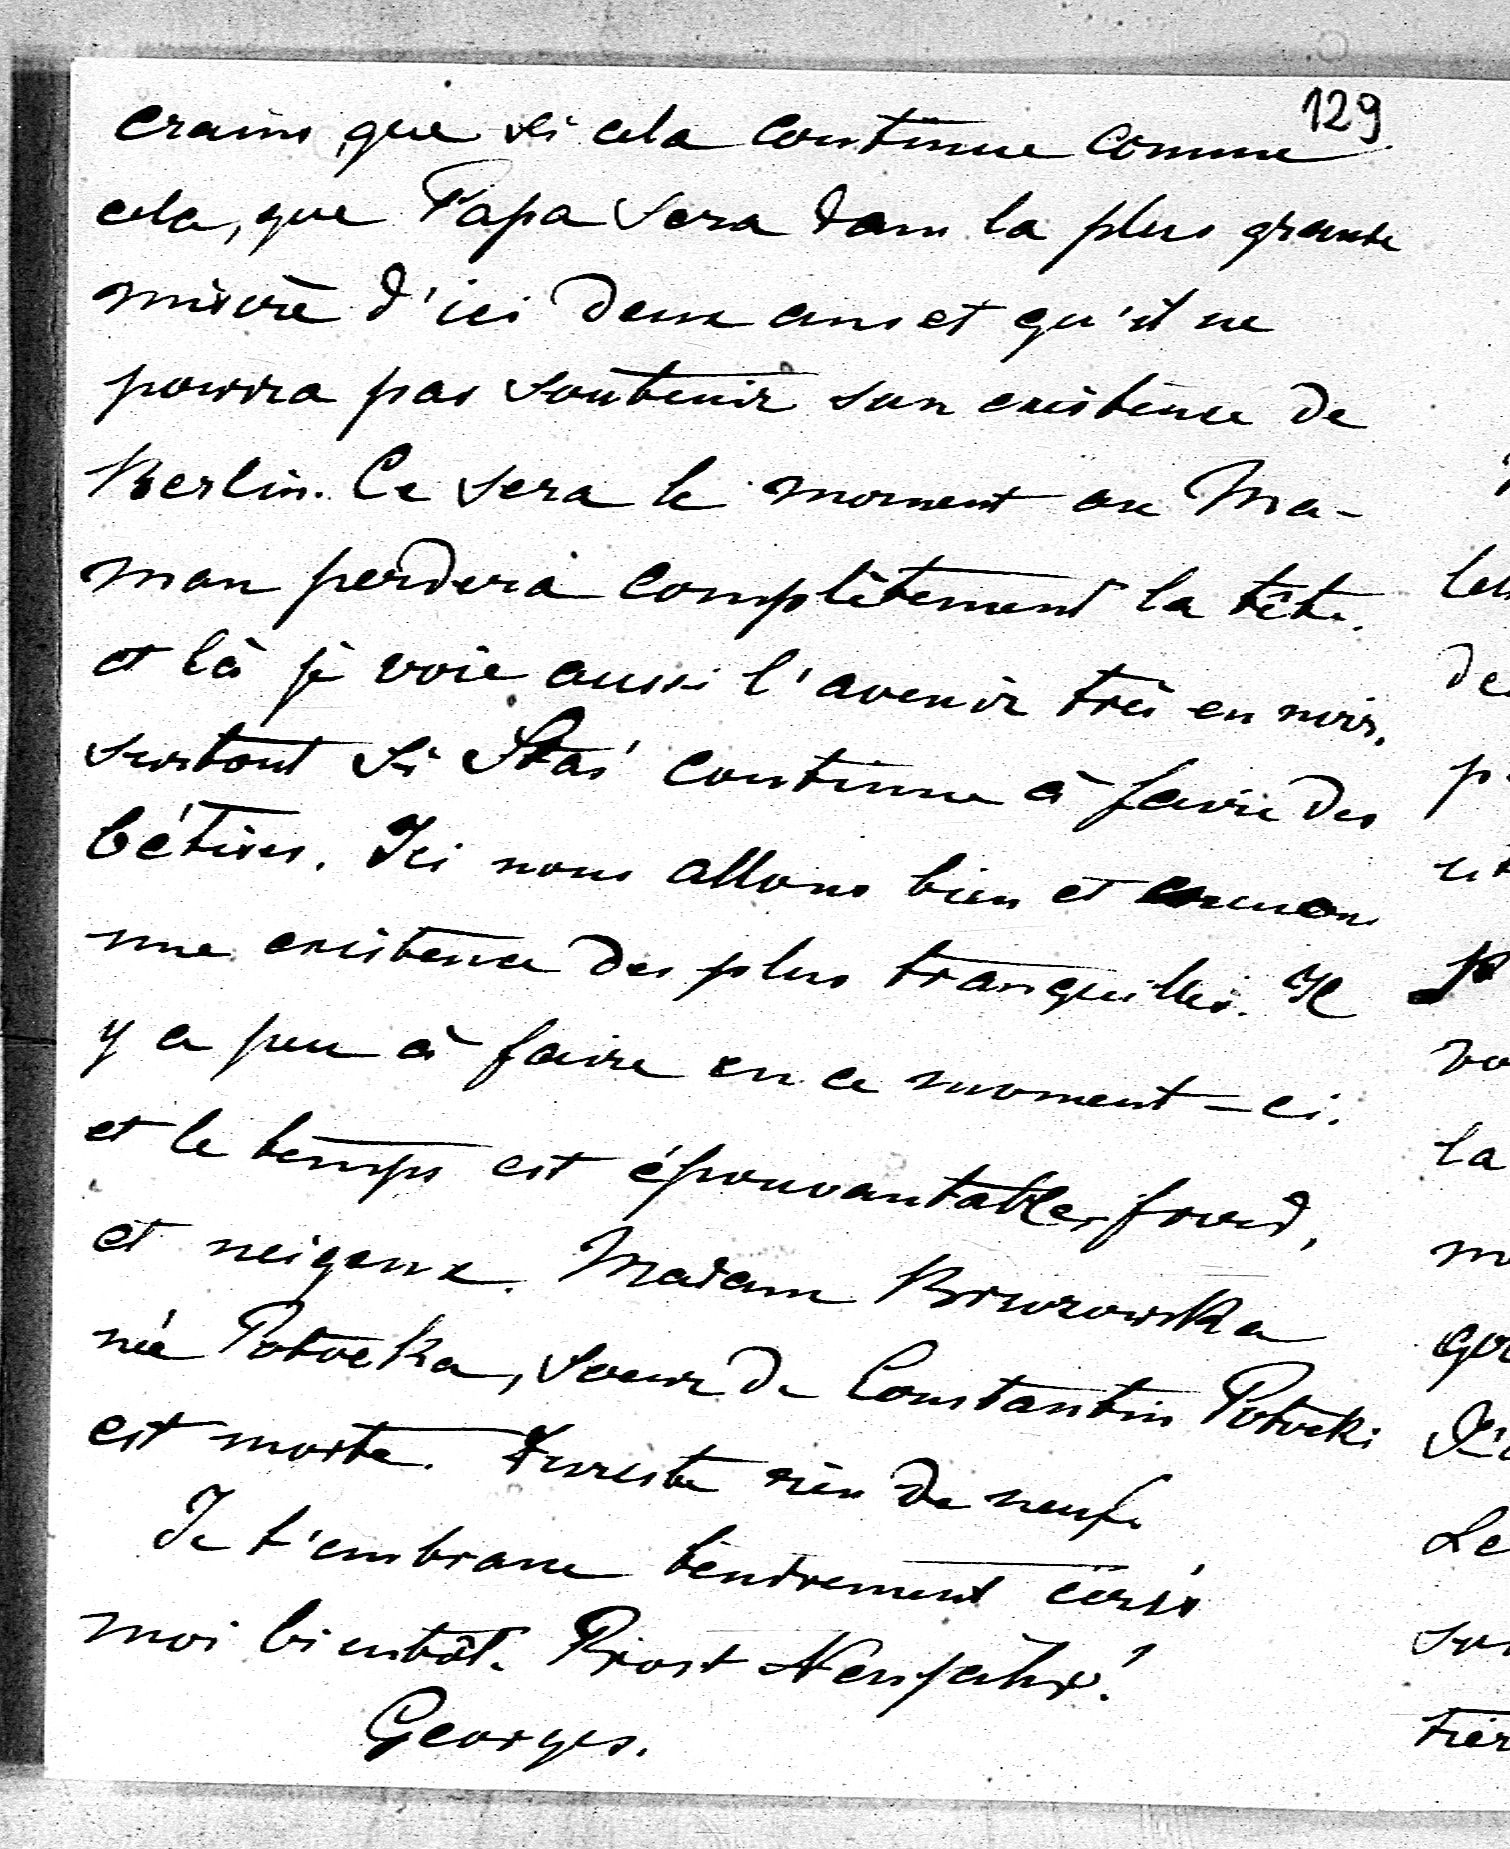 129
crains, que si cela continue comme
cela, que Papa sera dans la plus grande
misère d'ici deux ans et qu'il ne
pourra pas soutenir son existence de
Berlin. Ce sera le moment ou Ma-
man perdera complètement la tête.
et là je voie aussi l'avenir très en noir,
surtout si Staś continue à faire des
bétises. Ici nous allons bien et
une existence des plus tranquilles. Il
y a peu à faire en ce moment-ci.
et le temps est épouvantable, froid,
et neigeux. Madame
née Potocka, soeur de Constantin Potocki
est morte. rien de neuf.
Je t'embrasse tendrement écris
moi bientôt. Prost Neujahr!
Georges.